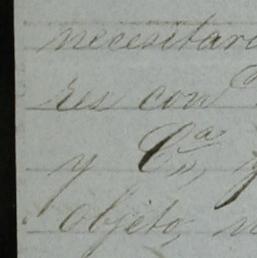 necesitar
res con
y Ca,
objeto,